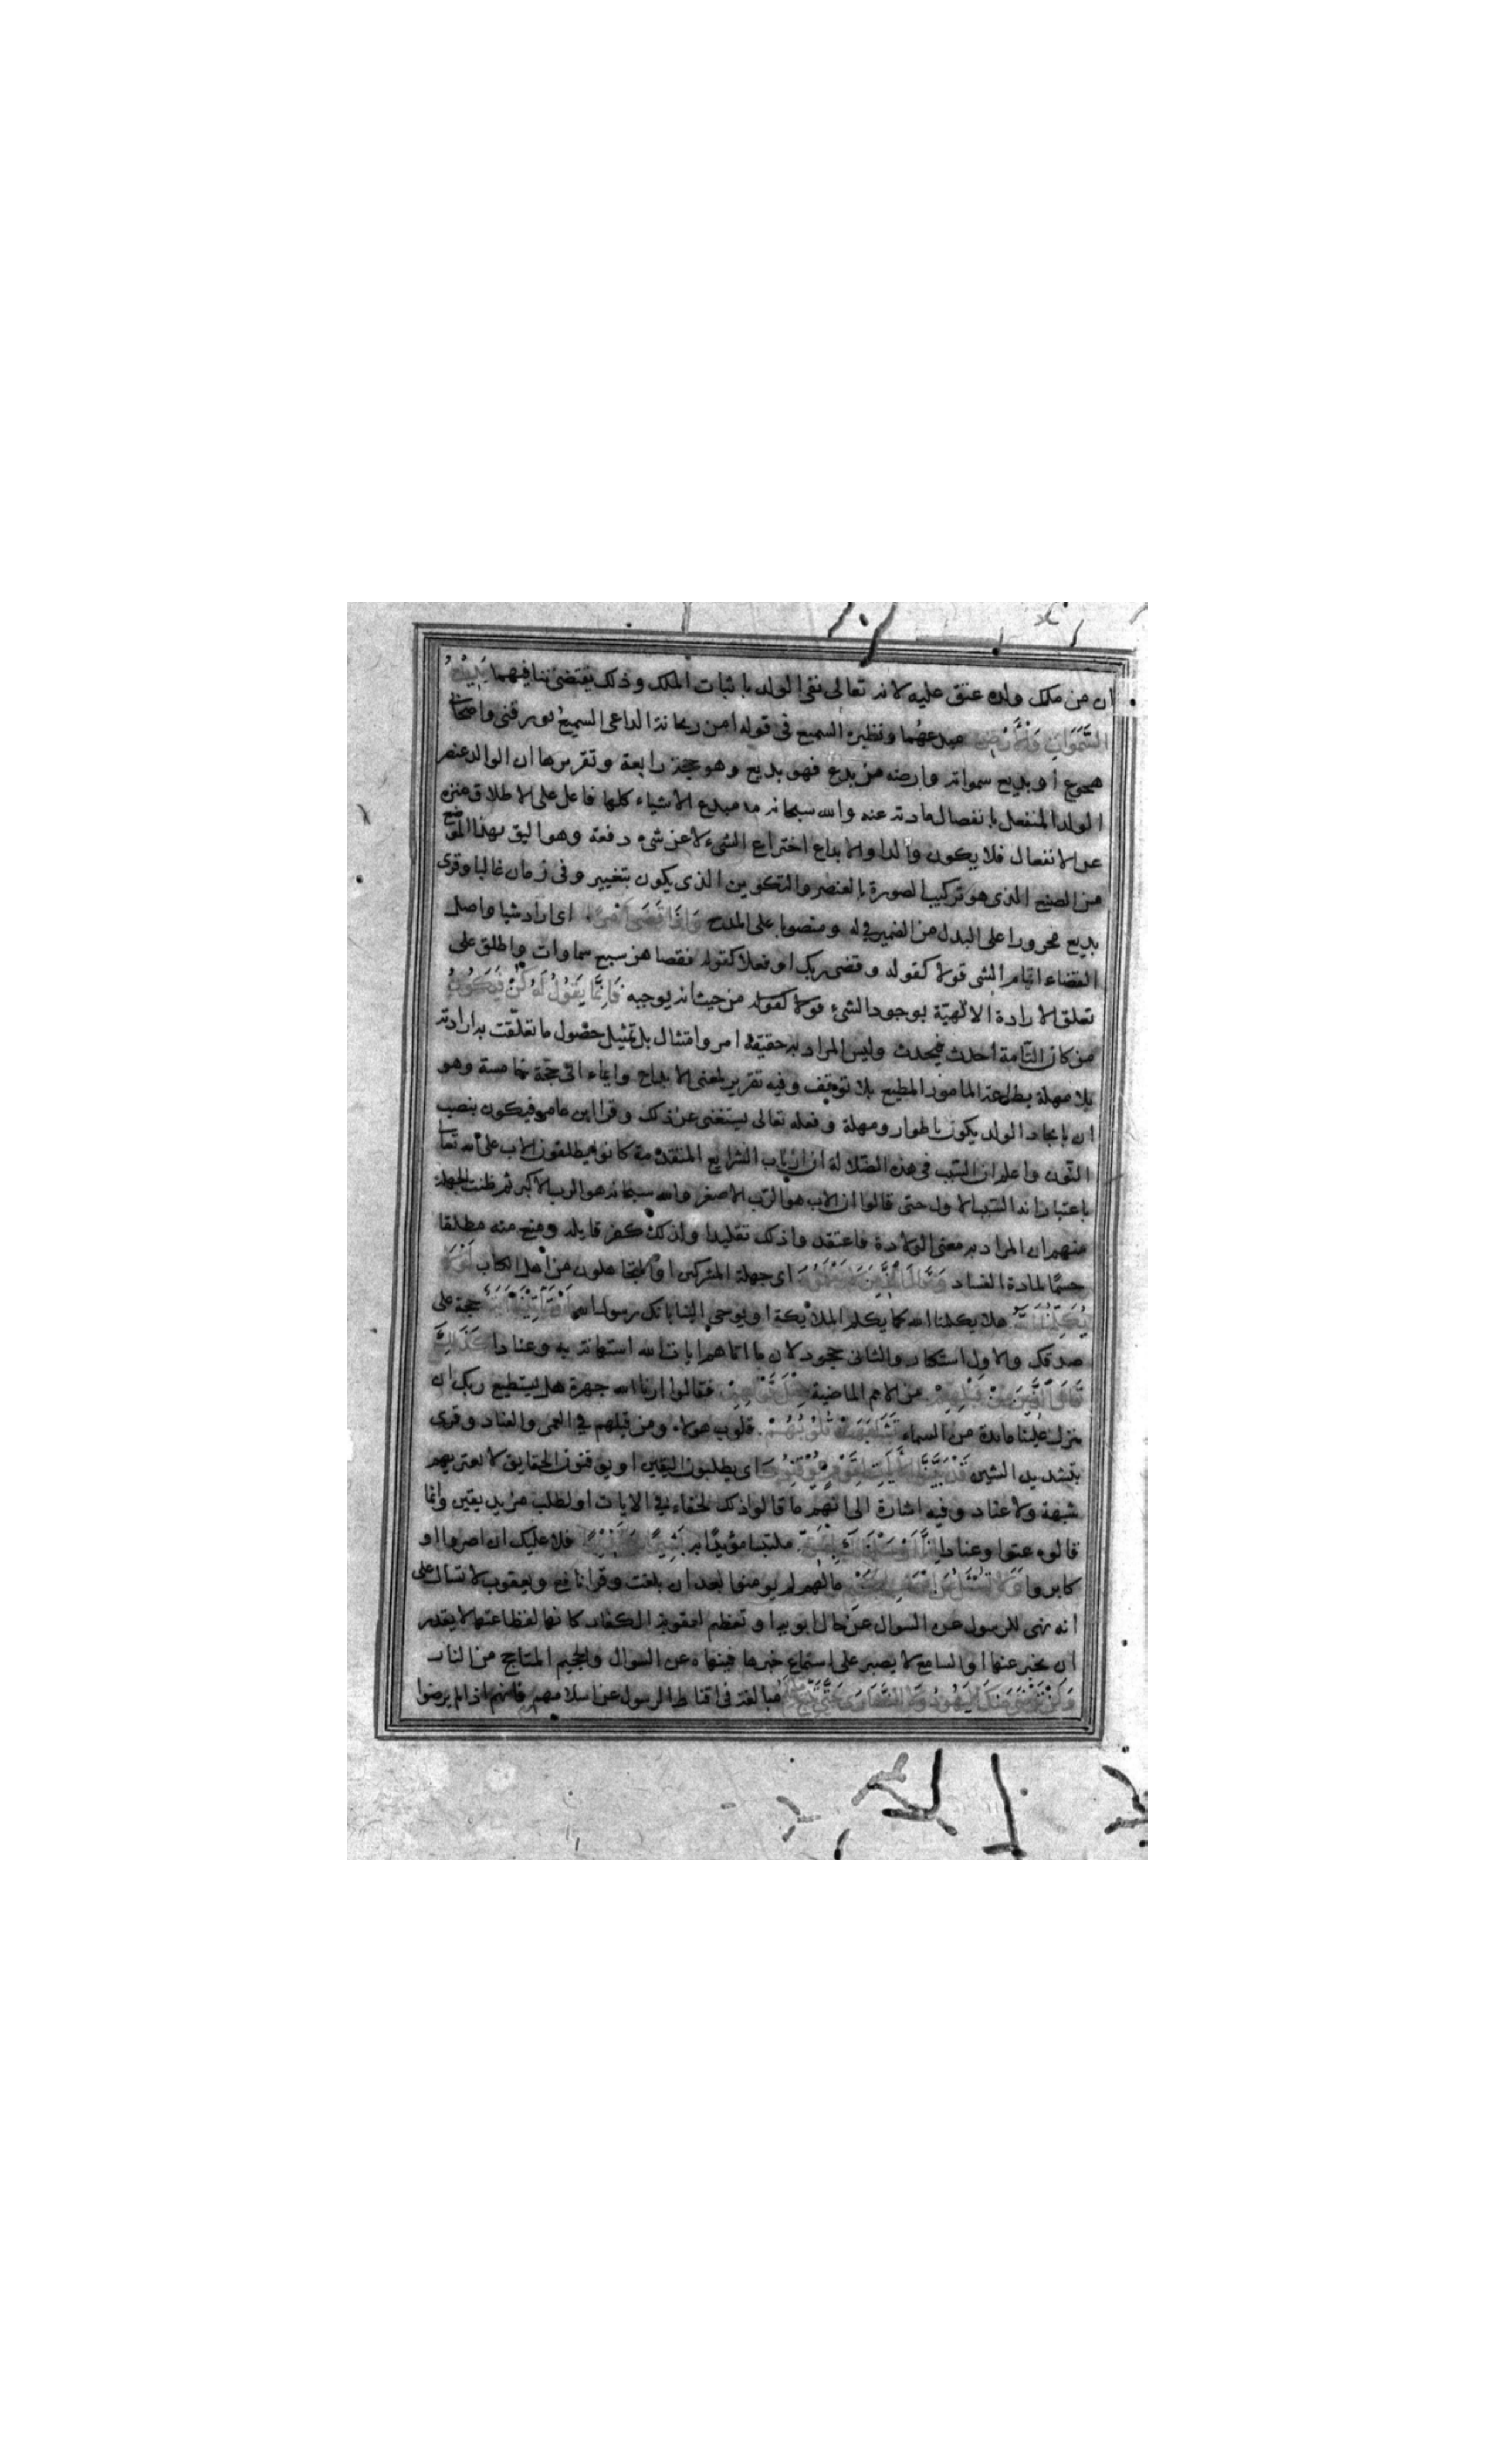 ان من ملك ولده عتق عليه لانه تعالى نفى الولد باثبات الملك وذلك يقتضى تنافيهما بديع
السموات والارض مبدعهما ونظيره السميع فى قوله امن ريحانة الداعى السميع يورقنى واصحابى
هجوع او بديع سمواته وارضه من بدع فهو بديع وهو حجة رابعة وتقريرها ان الوالد عنصر
الولد المنفعل بانفصال مادته عنه والله سبحانه مبدع الاشياء كلها فاعل على الاطلاق منزه
عن الانفعال فلا يكون والدا والابداع اختراع الشىء لا عن شىء دفعة وهو اليق بهذا الموضع
من الصنع الذى هو تركيب الصورة بالعنصر والتكوين الذى يكون بتغيير وفى زمان غالبا وقرى
بديع مجرورا على البدل من الضمير فى له ومنصوبا على المدح واذا قضى امرا اى اراد شيا واصل
القضاء اتمام الشى قولا كقوله وقضى ربك او فعلا كقوله فقضاهن سبع سماوات واطلق على
تعلق الارادة الالهية بوجود الشىء من حيث انه يوجبه فانما يقول له كن فيكون
من كان التامة احدث فيحدث وليس المراد به حقيقة امر وامتثال بل تمثيل حصول ما تعلقت به ارادته
بلا مهلة بطاعة المامور المطيع بلا توقف وفيه تقرير لمعنى الابداع وايماء الى حجة خامسة وهو
ان ايجاد الولد يكون باطوار ومهلة وفعله تعالى يستغنى عن ذلك وقرا ابن عامر فيكون بنصب
النون واعلم ان السبب فى هذه الضلالة ان ارباب الشرايع المتقدمة كانوا يطلقون الاب على الله تعا
باعتبار انه السبب الاول حتى قالوا ان الاب هو الرب الاصغر والله سبحانه هو الرب الاكبر ثم ظنت الجهلة
منهم ان المراد به معنى الولادة فاعتقدوا ذلك تقليدا ولذلك كفر قايله ومنع منه مطلقا
حسما لمادة الفساد وقال الذين لا يعلمون اى جهلة المشركين او المتجاهلون من اهل الكتاب لولا
يكلمنا الله هلا يكلمنا الله كما يكلم الملائكة او يوحى الينا بانك رسوله او تاتينا اية حجة على
صدقك والاول استكبار والثانى جحود لان ما اتاهم ايات الله استهانة به وعنادا كذلك
قال الذين من قبلهم من الامم الماضية مثل قولهم فقالوا ارنا الله جهرة هل يستطيع ربك ان
ينزل علينا مائدة من السماء تشابهت قلوبهم قلوب هولاء ومن قبلهم فى العمى والعناد وقرى
بتشديد الشين قد بينا الايات لقوم يوقنون اى يطلبون اليقين او يوقنون الحقايق لا يعتريهم
شبهة ولا عناد وفيه اشارة الى انهم ما قالوا ذلك لخفاء فى الايات او لطلب مزيد يقين وانما
قالوه عتوا وعنادا انا ارسلناك بالحق ملتبسا مؤيدا به بشيرا ونذيرا فلا عليك ان اصروا او
كابروا ولا تسئل عن اصحاب الجحيم ما لهم لم يومنوا بعد ان بلغت وقرا نافع ويعقوب لا تسال على
انه نهى للرسول عن السوال عن حال ابويه او تعظيم لعقوبة الكفار كانها لفظاعتها لا يقدر
ان يخبر عنها او السامع لا يصبر على استماع خبرها فينهاه عن السوال والجحيم المتاجج من النار
ولن ترضى عنك اليهود ولا النصارى حتى تتبع ملتهم مبالغة فى اقناط الرسول عن اسلامهم فانهم اذا لم يرضوا